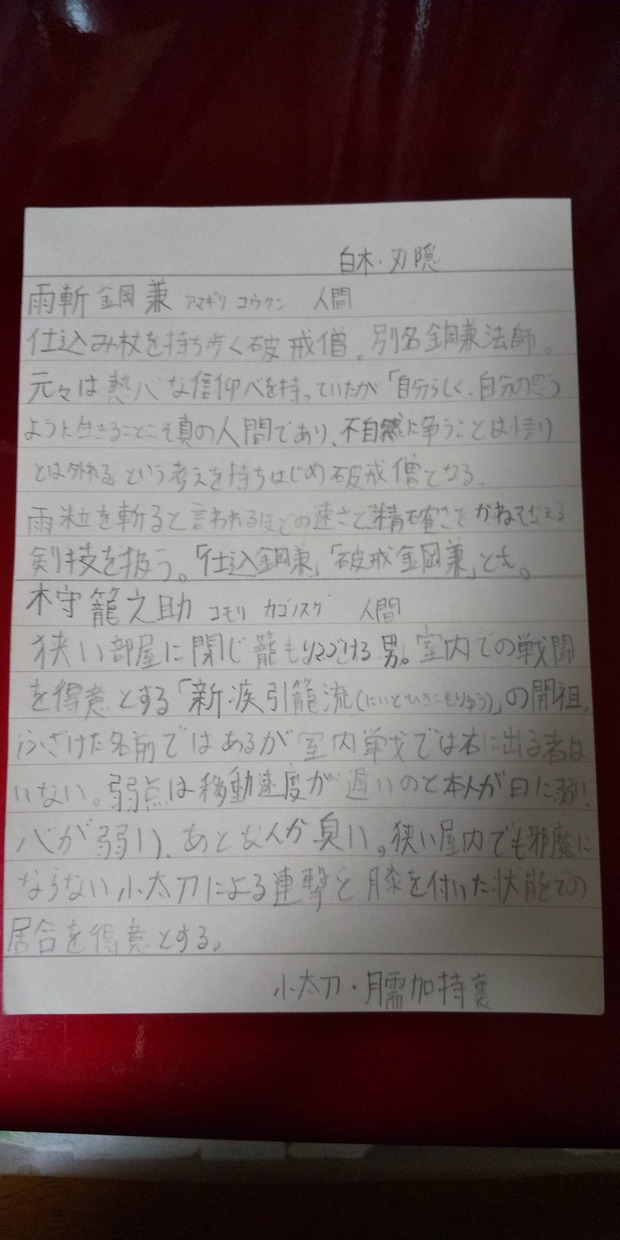 白木・刃隠
雨斬 鋼兼 アマギリ コウケン 人間
仕込み杖を持ち歩く破戒僧。別名鋼兼法師。
元々は熱心な信仰心を持っていたが「自分らしく、自分の思う
ように生きることこそ真の人間であり、不自然に争うことは悟り
とは外れる」という考えを持ちはじめ破戒僧となる。
雨粒を斬ると言われるほどの速さと精確さをかねそなえる
剣技を扱う。「仕込鋼兼」「破戒鋼兼」とも。
木守 籠之助 コモリ カゴノスケ 人間
狭い部屋に閉じ籠もりつづける男。室内での戦闘
を得意とする「新疾引籠流(にいとひきこもりゅう)」の開祖。
ふざけた名前ではあるが室内戦では右に出る者は
いない。弱点は移動速度が遅いのと本人が日に弱い、
心が弱い、あと 臭い。狭い屋内でも邪魔に
ならない小太刀による連撃と膝を付いた状態での
居合を得意とする。
小太刀・